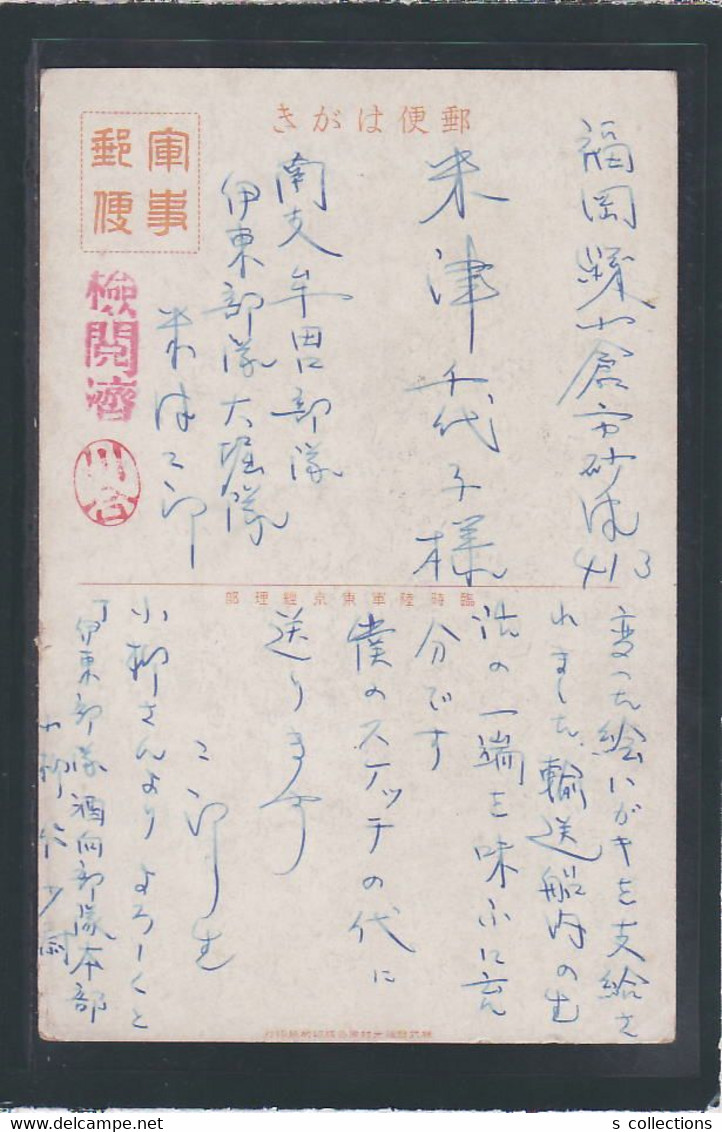 郵便はがき
軍事郵便
検閲濟
川合
福岡縣小倉市砂津413
米津千代子様
南支牟田口部隊
伊東部隊大堀隊
米津二郎
臨時陸軍東京經理部
変った絵ハガキを支給さ
れました、輸送船内の生
活の一端を味ふに充
分です
僕のスケッチの代に
送ります
二郎生
小柳さんよりよろしくと
伊東部隊酒向部隊本部
小柳
少尉
s collections